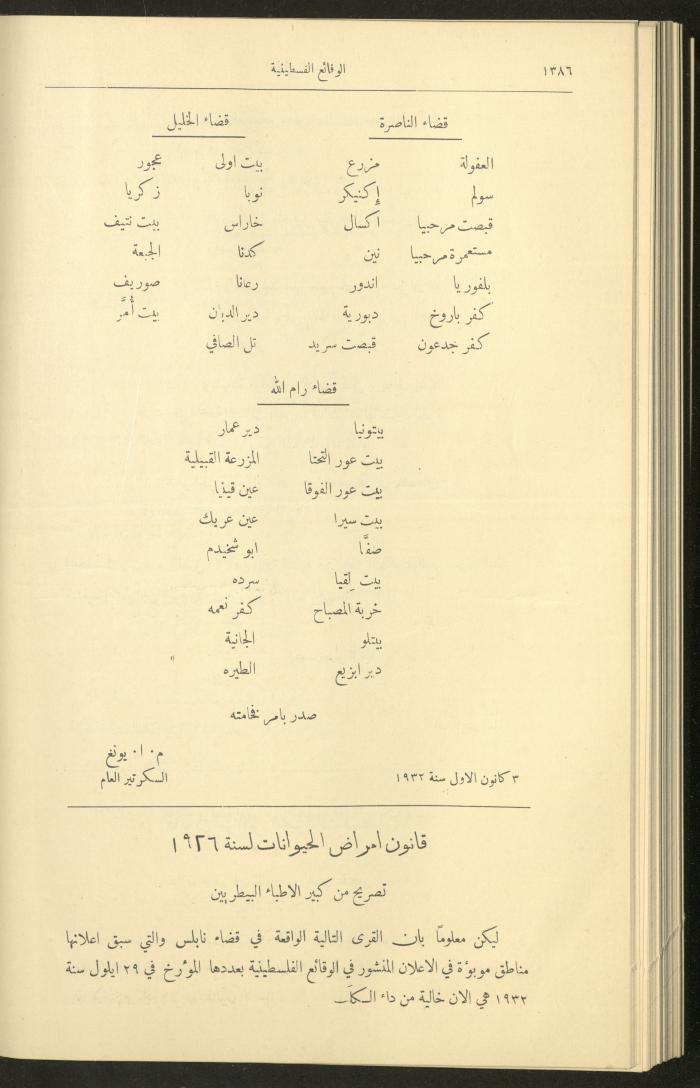 ١٣٨٦ الوقائع الفسطينية
قضاء الناصرة قضاء الخليل
العفولة مزرع بيت اولى عجور
سولم إكنيكر نوبا زكريا
قبصت مرحبيا اكسال خاراس بيت نتيف
مستعمرة مرحبيا نين كدنا الجبعة
بلفوريا اندور رعانا صوريف
كفر باروخ دبورية دير الدبان بيت أُمَّر
كفر جدعون قبصت سريد تل الصافي
قضاء رام الله
بيتونيا دير عمار
بيت عور التحتا المزرعة القبيلية
بيت عور الفوقا عين قينيا
بيت سيرا عين عريك
صفَّا ابو شخيدم
بيت لِقيا سرده
خربة المصباح كفر نعمه
بيتلو الجانية
دير ابزيع الطيره
صدر بامر فخامته
م٠ا٠ يونغ
٣ كانون الاول سنة ١٩٣٢ السكرتير العام
قانون امراض الحيوانات لسنة ١٩٢٦
تصريح من كبير الاطباء البيطريين
ليكن معلومًا بان القرى التالية الواقعة في قضاء نابلس والتي سبق اعلانها
مناطق موبوءة في الاعلان المنشور في الوقائع الفلسطينية بعددها المؤرخ في ٢٩ ايلول سنة
١٩٣٢ هي الان خالية من داء الكلب